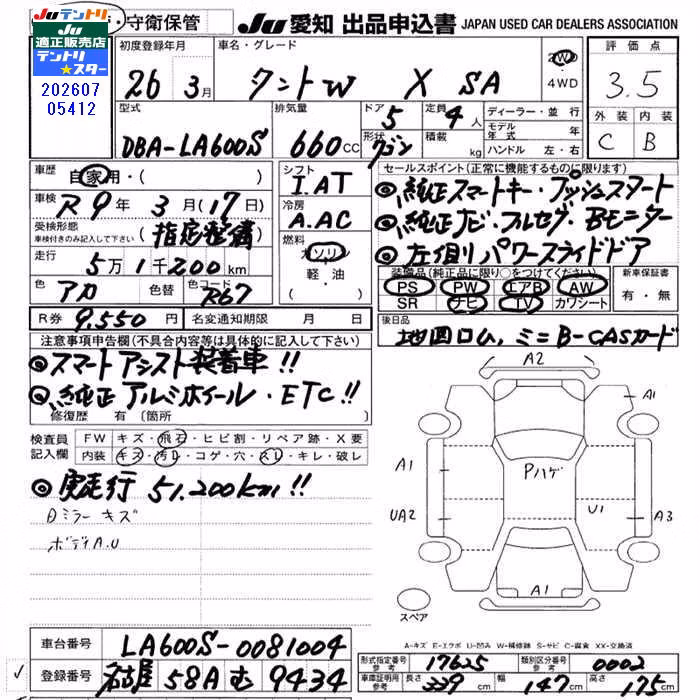 JUテントリ
適正販売店
テントリ
★スター
202607
05412
・守衛保管
JU 愛知 出品申込書 JAPAN USED CAR DEALERS ASSOCIATION
初度登録年月 車名・グレード 2WD 4WD 評価点
26 3月 タントW X SA 3.5
型式 排気量 ドア 定員 ディーラー・並行 外装 内装
5 4人 モデル年式 年
DBA-LA600S 660cc 形状 ワゴン 積載 kg ハンドル 左・右 C B
車歴 自家用・( ) シフト I.AT セールスポイント(正常に機能するものに限ります)
車検 R9年 3月(17日) 冷房 A.AC ◎純正スマートキー・プッシュスタート
受検形態 車検付きのみ記入して下さい (指定整備) 燃料 ガソリン 軽・油 ◎純正ナビ・フルセグ・Bモニター
走行 5万1千200km ◎左側リパワースライドドア
色 アカ 色コード R67 装備品(純正品に限り○をつけてください) 新車保証書
PS PW エアB AW 有・無
SR ナビ TV カワシート
R券 9,550円 名変通知期限 月 日 後日品
地図ロム,ミニB-CASカード
注意事項申告欄(不具合内容等は具体的に記入して下さい)
◎スマートアシスト装着車!!
◎純正アルミホイール・ETC!!
修復歴 有〔箇所
検査員 記入欄 FW キズ・飛石・ヒビ割・リペア跡・X要
内装 キズ・汚レ・コゲ・穴・スレ・キレ・破レ
◎実走行 51,200km!!
Dミラーキズ
ボディA.U
A2
A1
A1 Pハゲ
UA2 U1 A3
A1
スペア
A-キズ E-エクボ U-凹み W-補修跡 S-サビ C-腐食 XX-交換済
車台番号 LA600S-0081004
登録番号 名古屋 58A む 9434
形式指定番号 参考 17625 類別区分番号 参考 0002
車庫証明用 参考 長さ 339cm 幅 147cm 高さ 175cm